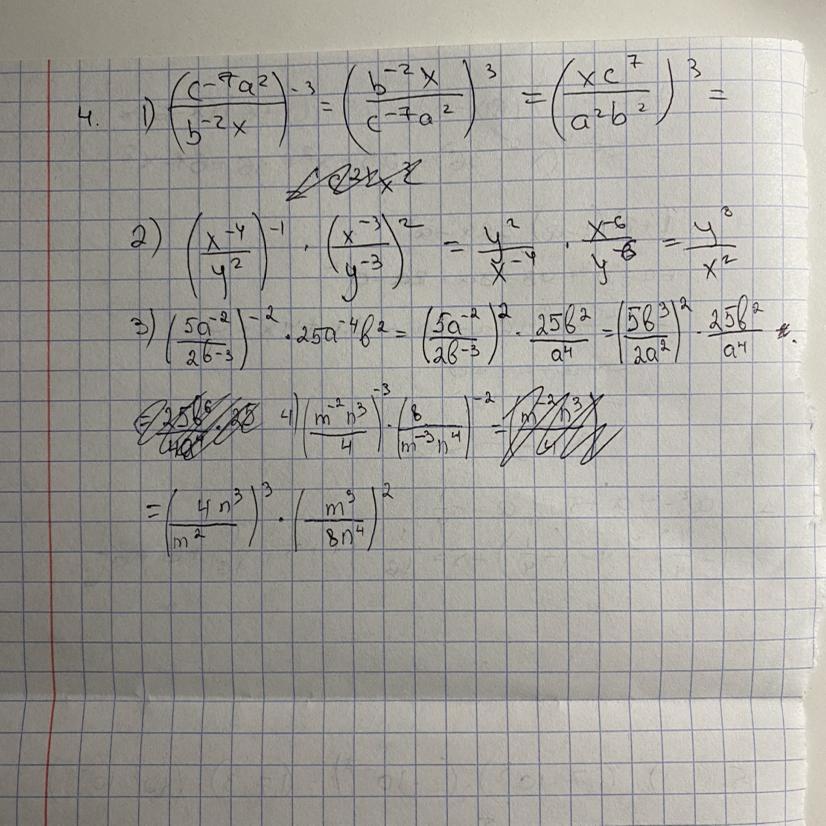 4. 1) (c⁻⁷a²/b⁻²x)⁻³ = (b⁻²x/c⁻⁷a²)³ = (xc⁷/a²b²)³ =
2) (x⁻⁴/y²)⁻¹ · (x⁻³/y⁻³)² = y²/x⁻⁴ · x⁻⁶/y⁻⁶ = y⁸/x²
3) (5a⁻²/2b⁻³)⁻² · 25a⁻⁴b² = (5a⁻²/2b⁻³)² · 25b²/a⁴ = (5b³/2a²)² · 25b²/a⁴
4) (m⁻²n³/4)⁻³ · (8/m⁻³n⁴)⁻² =
= (4n³/m²)³ · (m³/8n⁴)²